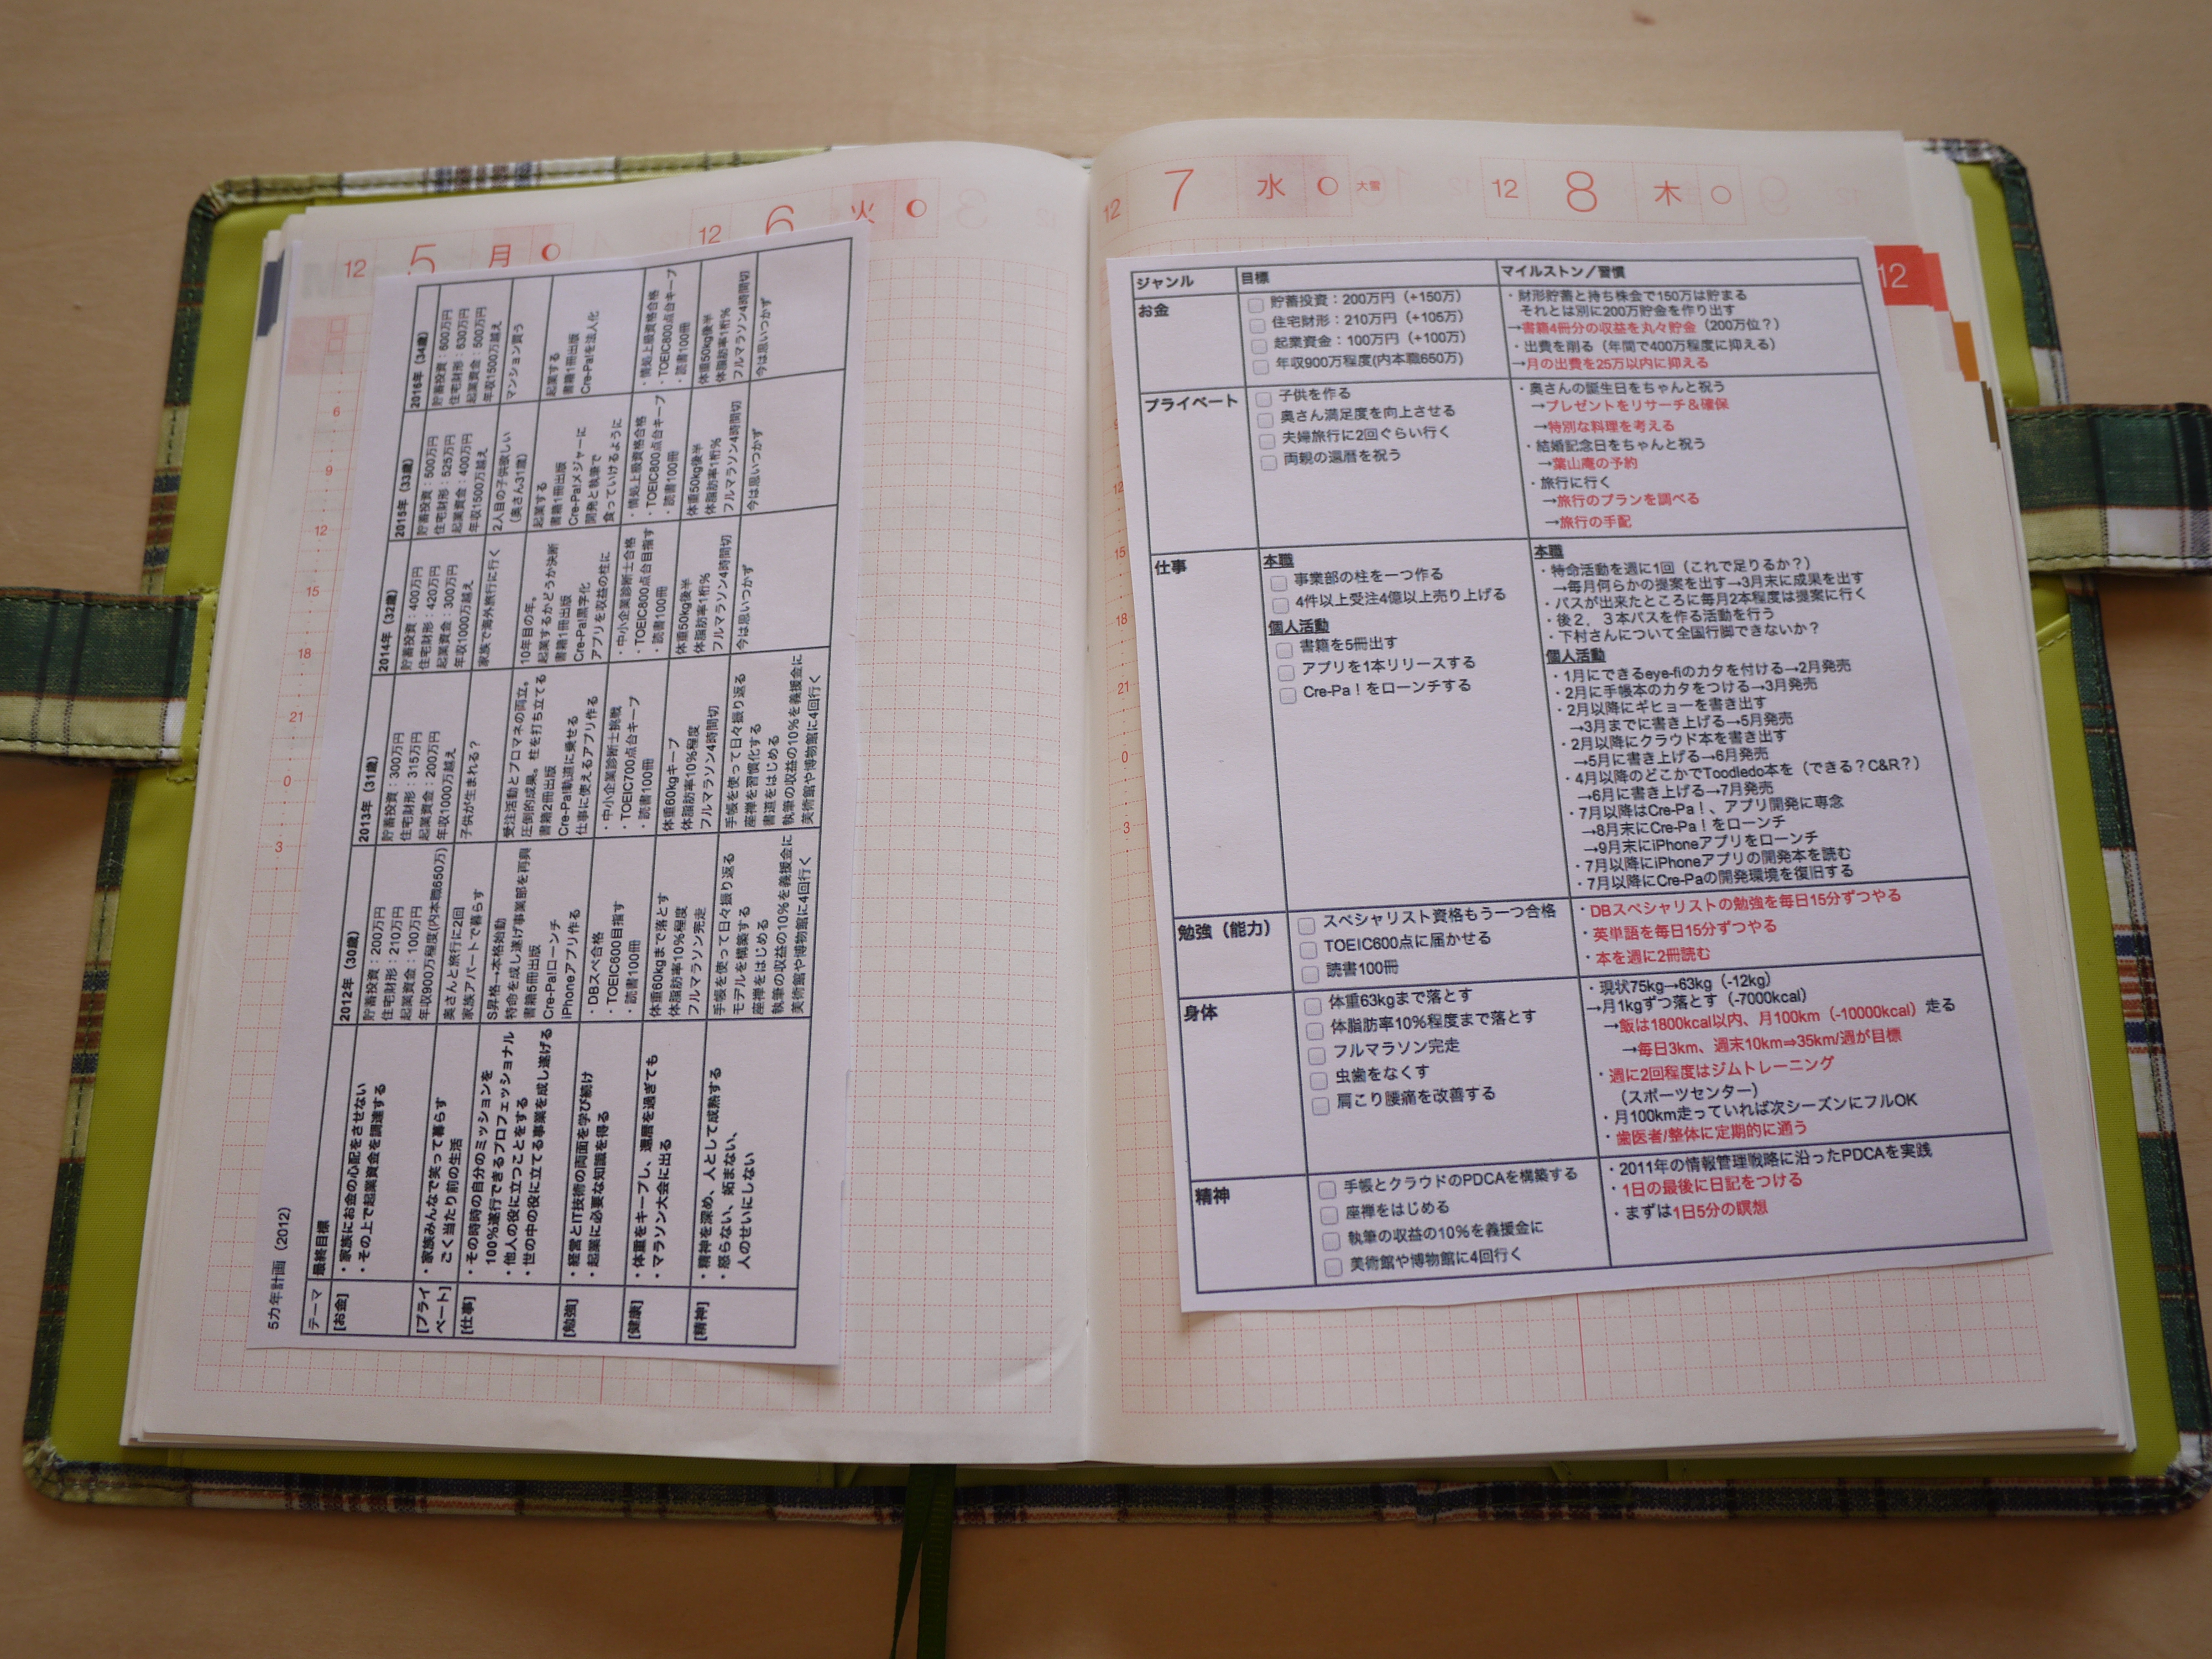 12 5 月
12 6 火
6
9
12
15
18
21
0
3
5カ年計画（2012）
テーマ 最終目標 2012年（30歳） 2013年（31歳） 2014年（32歳） 2015年（33歳） 2016年（34歳）
[お金]
・家族にお金の心配をさせない
・その上で起業資金を調達する
貯蓄投資：200万円
住宅財形：210万円
起業資金：100万円
年収900万程度(内本職650万)
貯蓄投資：300万円
住宅財形：315万円
起業資金：200万円
年収1000万越え
貯蓄投資：400万円
住宅財形：420万円
起業資金：300万円
年収1000万越え
貯蓄投資：500万円
住宅財形：525万円
起業資金：400万円
年収1500万越え
貯蓄投資：600万円
住宅財形：630万円
起業資金：500万円
年収1500万越え
[プライ
ベート]
・家族みんなで笑って暮らす
ごく当たり前の生活
奥さんと旅行に2回
家族アパートで暮らす
子供が生まれる？
家族で海外旅行に行く
2人目の子供欲しい
（奥さん31歳）
マンション買う
[仕事]
・その時時の自分のミッションを
100%遂行できるプロフェッショナル
・他人の役に立つことをする
・世の中の役に立てる事業を成し遂げる
S昇格→本格始動
特命を成し遂げ事業部を再興
書籍5冊出版
Cre-Pa!ローンチ
iPhoneアプリ作る
受注活動とプロマネの両立。
圧倒的成果。柱を打ち立てる
書籍2冊出版
Cre-Pa!軌道に乗せる
仕事に使えるアプリ作る
10年目の年。
起業するかどうか決断
書籍1冊出版
Cre-Pa!黒字化
アプリを収益の柱に
起業する
書籍1冊出版
Cre-Pa!メジャーに
開発と執筆で
食っていけるように
起業する
書籍1冊出版
Cre-Pa!を法人化
[勉強]
・経営とIT技術の両面を学び続け
・起業に必要な知識を得る
・DBスペ合格
・TOEIC600目指す
・読書100冊
・中小企業診断士挑戦
・TOEIC700点台キープ
・読書100冊
・中小企業診断士合格
・TOEIC800点台目指す
・読書100冊
・情処上級資格合格
・TOEIC800点台キープ
・読書100冊
・情処上級資格合格
・TOEIC800点台キープ
・読書100冊
[健康]
・体重をキープし、還暦を過ぎても
・マラソン大会に出る
体重60kgまで落とす
体脂肪率10%程度
フルマラソン完走
体重60kgキープ
体脂肪率10%程度
フルマラソン4時間切
体重50kg後半
体脂肪率1桁%
フルマラソン4時間切
体重50kg後半
体脂肪率1桁%
フルマラソン4時間切
体重50kg後半
体脂肪率1桁%
フルマラソン4時間切
[精神]
・精神を深め、人として成熟する
・怒らない、妬まない、
人のせいにしない
手帳を使って日々振り返る
モデルを構築する
座禅をはじめる
執筆の収益の10%を義援金に
美術館や博物館に4回行く
手帳を使って日々振り返る
座禅を習慣化する
書道をはじめる
執筆の収益の10%を義援金に
美術館や博物館に4回行く
今は思いつかず
今は思いつかず
今は思いつかず
12 7 水 大雪
12 8 木
12
12
15
18
21
0
3
ジャンル 目標 マイルストン／習慣
お金
貯蓄投資：200万円（+150万）
住宅財形：210万円（+105万）
起業資金：100万円（+100万）
年収900万程度(内本職650万)
・財形貯蓄と持ち株会で150万は貯まる
それとは別に200万貯金を作り出す
→書籍4冊分の収益を丸々貯金（200万位？）
・出費を削る（年間で400万程度に抑える）
→月の出費を25万以内に抑える
プライベート
子供を作る
奥さん満足度を向上させる
夫婦旅行に2回ぐらい行く
両親の還暦を祝う
・奥さんの誕生日をちゃんと祝う
→プレゼントをリサーチ＆確保
→特別な料理を考える
・結婚記念日をちゃんと祝う
→葉山庵の予約
・旅行に行く
→旅行のプランを調べる
→旅行の手配
仕事
本職
事業部の柱を一つ作る
4件以上受注4億以上売り上げる
個人活動
書籍を5冊出す
アプリを1本リリースする
Cre-Pa！をローンチする
本職
・特命活動を週に1回（これで足りるか？）
→毎月何らかの提案を出す→3月末に成果を出す
・パスが出来たところに毎月2本程度は提案に行く
・後２，３本パスを作る活動を行う
・下村さんについて全国行脚できないか？
個人活動
・1月にできるeye-fiのカタを付ける→2月発売
・2月に手帳本のカタをつける→3月発売
・2月以降にギヒョーを書き出す
→3月までに書き上げる→5月発売
・2月以降にクラウド本を書き出す
→5月に書き上げる→6月発売
・4月以降のどこかでToodledo本を（できる？C&R？）
→6月に書き上げる→7月発売
・7月以降はCre-Pa！、アプリ開発に専念
→8月末にCre-Pa！をローンチ
→9月末にiPhoneアプリをローンチ
・7月以降にiPhoneアプリの開発本を読む
・7月以降にCre-Paの開発環境を復旧する
勉強（能力）
スペシャリスト資格もう一つ合格
TOEIC600点に届かせる
読書100冊
・DBスペシャリストの勉強を毎日15分ずつやる
・英単語を毎日15分ずつやる
・本を週に2冊読む
身体
体重63kgまで落とす
体脂肪率10%程度まで落とす
フルマラソン完走
虫歯をなくす
肩こり腰痛を改善する
・現状75kg→63kg（-12kg）
→月1kgずつ落とす（-7000kcal）
→飯は1800kcal以内、月100km（-10000kcal）走る
→毎日3km、週末10km⇒35km/週が目標
・週に2回程度はジムトレーニング
（スポーツセンター）
・月100km走っていれば次シーズンにフルOK
・歯医者/整体に定期的に通う
精神
手帳とクラウドのPDCAを構築する
座禅をはじめる
執筆の収益の10%を義援金に
美術館や博物館に4回行く
・2011年の情報管理戦略に沿ったPDCAを実践
・1日の最後に日記をつける
・まずは1日5分の瞑想